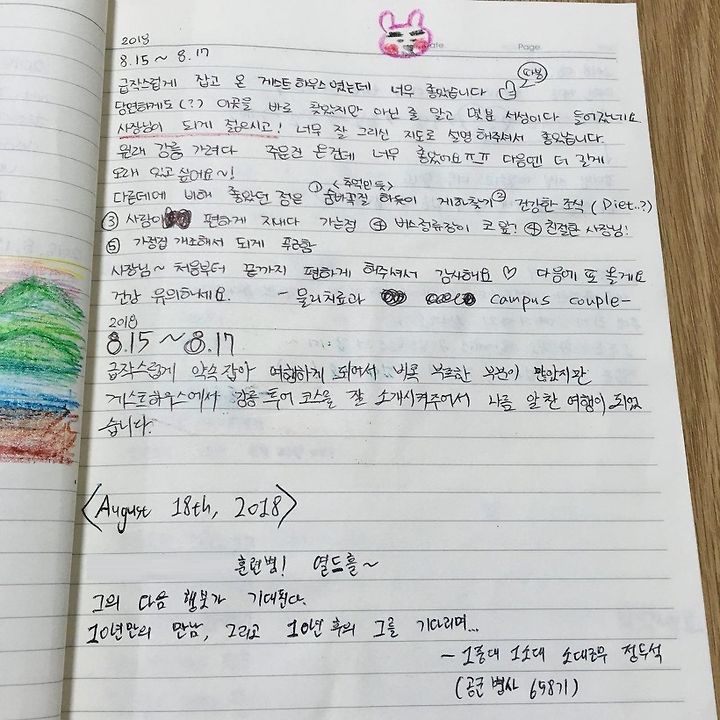 Date. Page.
2018
8.15 ~ 8.17
따봉
급작스럽게 잡고 온 게스트하우스였는데 너무 좋았습니다
당연하게도(?) 이곳을 바로 찾았지만 아닌 줄 알고 몇분 서성이다 들어갔네요
사장님이 되게 젊으시고! 너무 잘 그리신 지도로 설명해주셔서 좋았습니다.
원래 강릉 가려다 주문진 온건데 너무 좋았어요ㅠㅠ 다음엔 더 길게
오래 있고 싶어요~!
다른데에 비해 좋았던 점은 ① <추억인 듯> 숨바꼭질 하듯이 게하찾기 ② 건강한 조식 (Diet..?)
③ 사람이 편하게 지내다 가는점 ④ 버스정류장이 코 앞! ④ 친절한 사장님!
⑤ 가정집 개조해서 되게 푸근함
사장님~ 처음부터 끝까지 편하게 해주셔서 감사해요 ♡ 다음에 또 올게요
건강 유의하세요. - 물리치료과 campus couple-
2018
8.15 ~ 8.17
급작스럽게 약속 잡아 여행하게 되어서 비록 부족한 부분이 많았지만
게스트하우스에서 강릉 투어 코스을 잘 소개시켜주어서 나름 알찬 여행이 되었
습니다.
<August 18th, 2018>
훈련병! 열드흘~
그의 다음 행보가 기대된다.
10년만의 만남, 그리고 10년 후의 그를 기다리며...
- 1중대 1소대 소대근무 정두석
(공군 병사 658기)